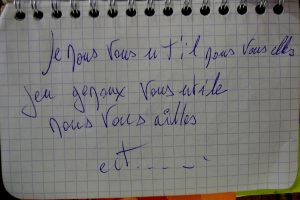 Je nous vous u til nous vous elles
jeu genoux vous utile
nous vous ailles
ect.......